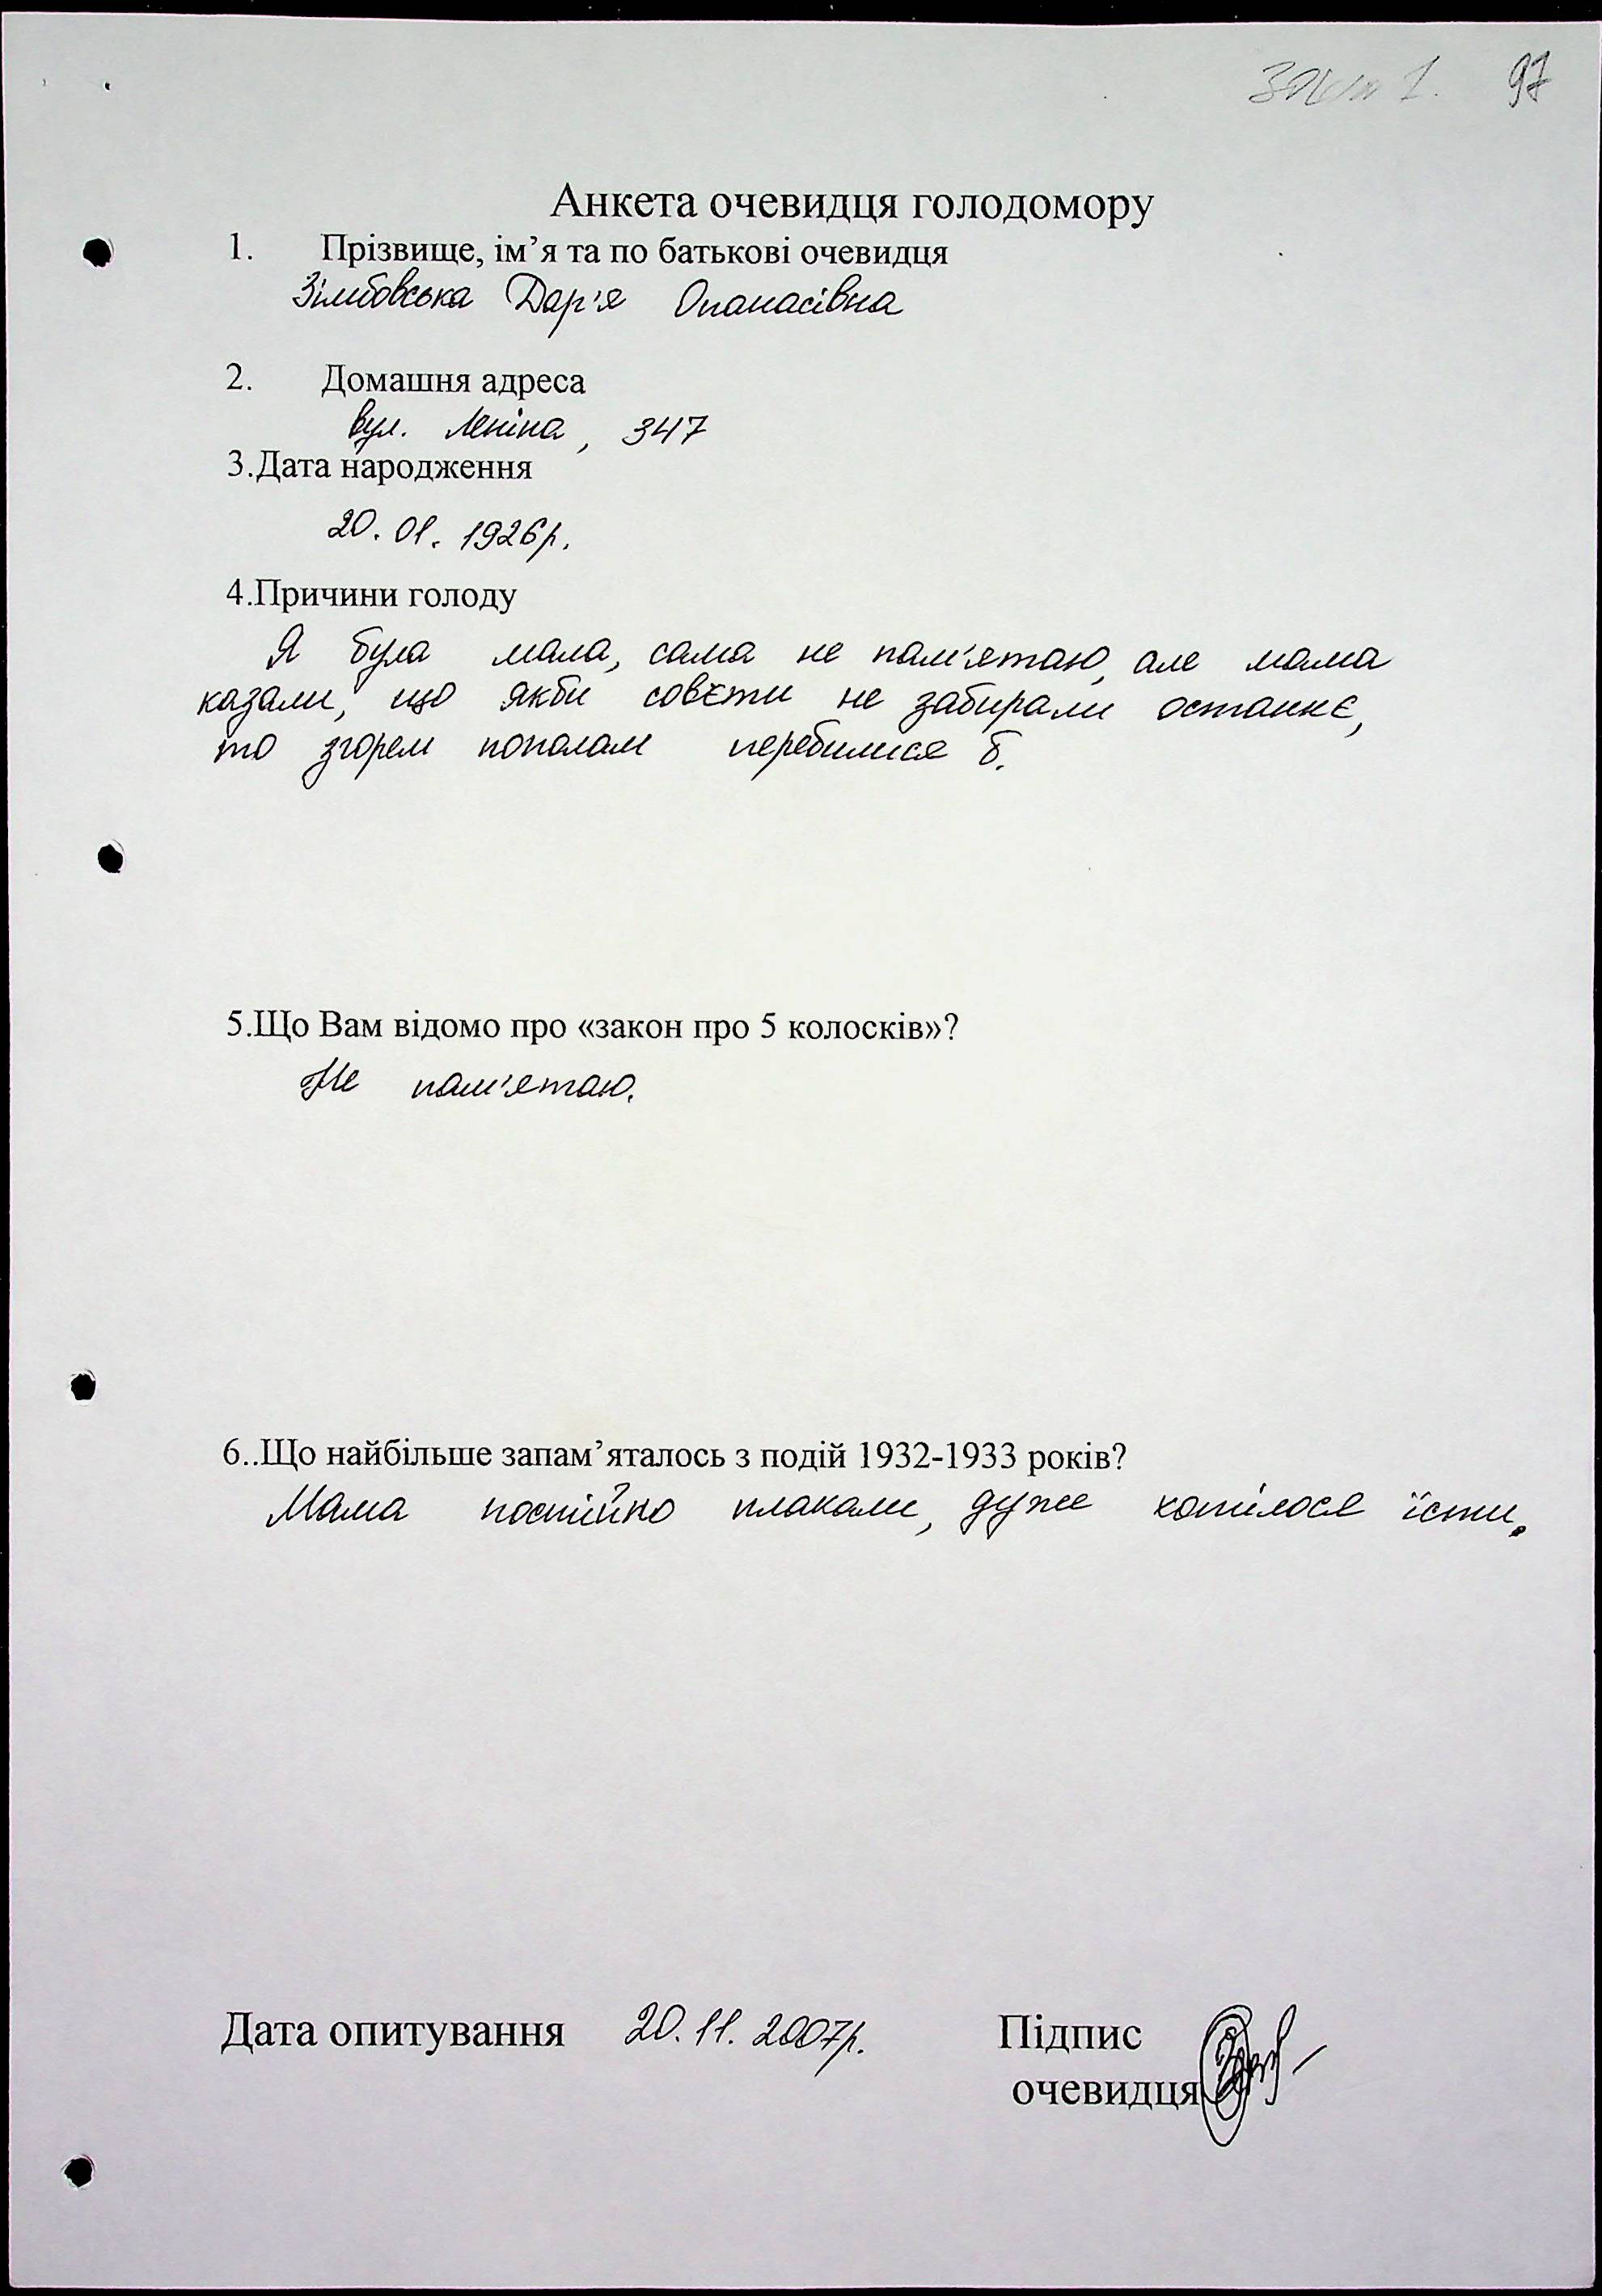 97
Анкета очевидця голодомору
1. Прізвище, ім’я та по батькові очевидця
Зімбовська Дар'я Опанасівна
2. Домашня адреса
вул. Леніна, 347
3.Дата народження
20.01.1926р.
4.Причини голоду
Я була мала, сама не пам'ятаю, але мама
казали, що якби совєти не забирали останнє,
то згорем пополам перебилися б.
5.Що Вам відомо про «закон про 5 колосків»?
Не пам'ятаю.
6..Що найбільше запам’яталось з подій 1932-1933 років?
Мама постійно плакали, дуже хотілося їсти.
Дата опитування 20.11.2007р. Підпис
очевидця